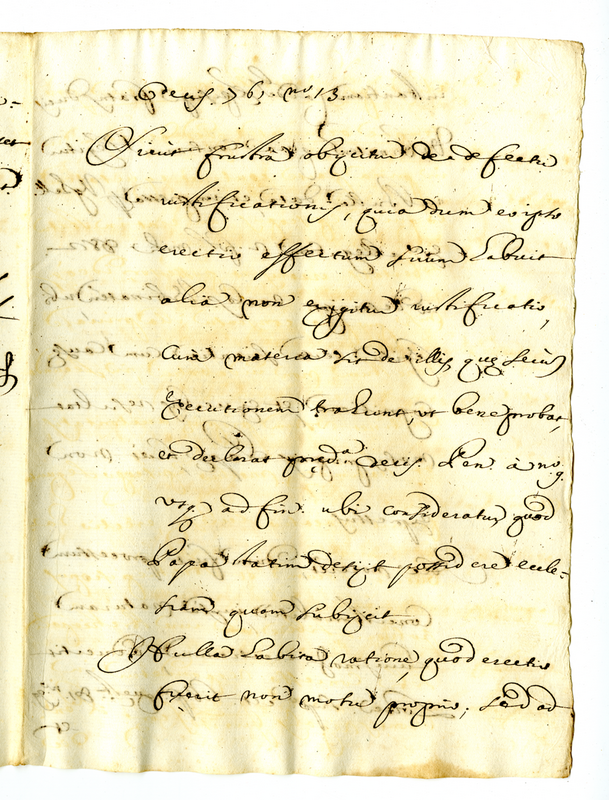 decis. 76, no. 13.
Sicuti frustra obijcitur de defectu
iustificationis, quia dum eo ipso
erectio effectum suum habuit
alia non exigitur iustificatio,
Cum materia sit de illis, quę secum
Executionem trahunt, ut bene probat,
et declarat pręd.a decis. Pen. à no. 9.
usq. ad fin. ubi consideratur quod
Papa statim desijt possidere eccle-
siam quam subijcit
Nulla habita ratione, quod erectio
fuerit non motu proprio, sed ad